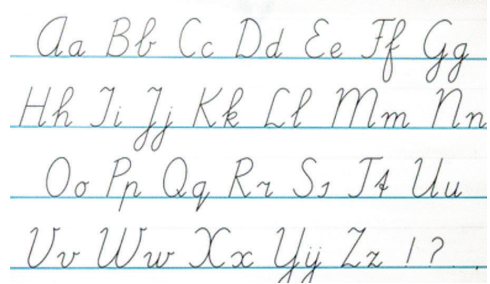 Aa Bb Cc Dd Ee Ff Gg
Hh Ii Jj Kk Ll Mm Nn
Oo Pp Qq Rr Ss Tt Uu
Vv Ww Xx Yy Zz ! ?